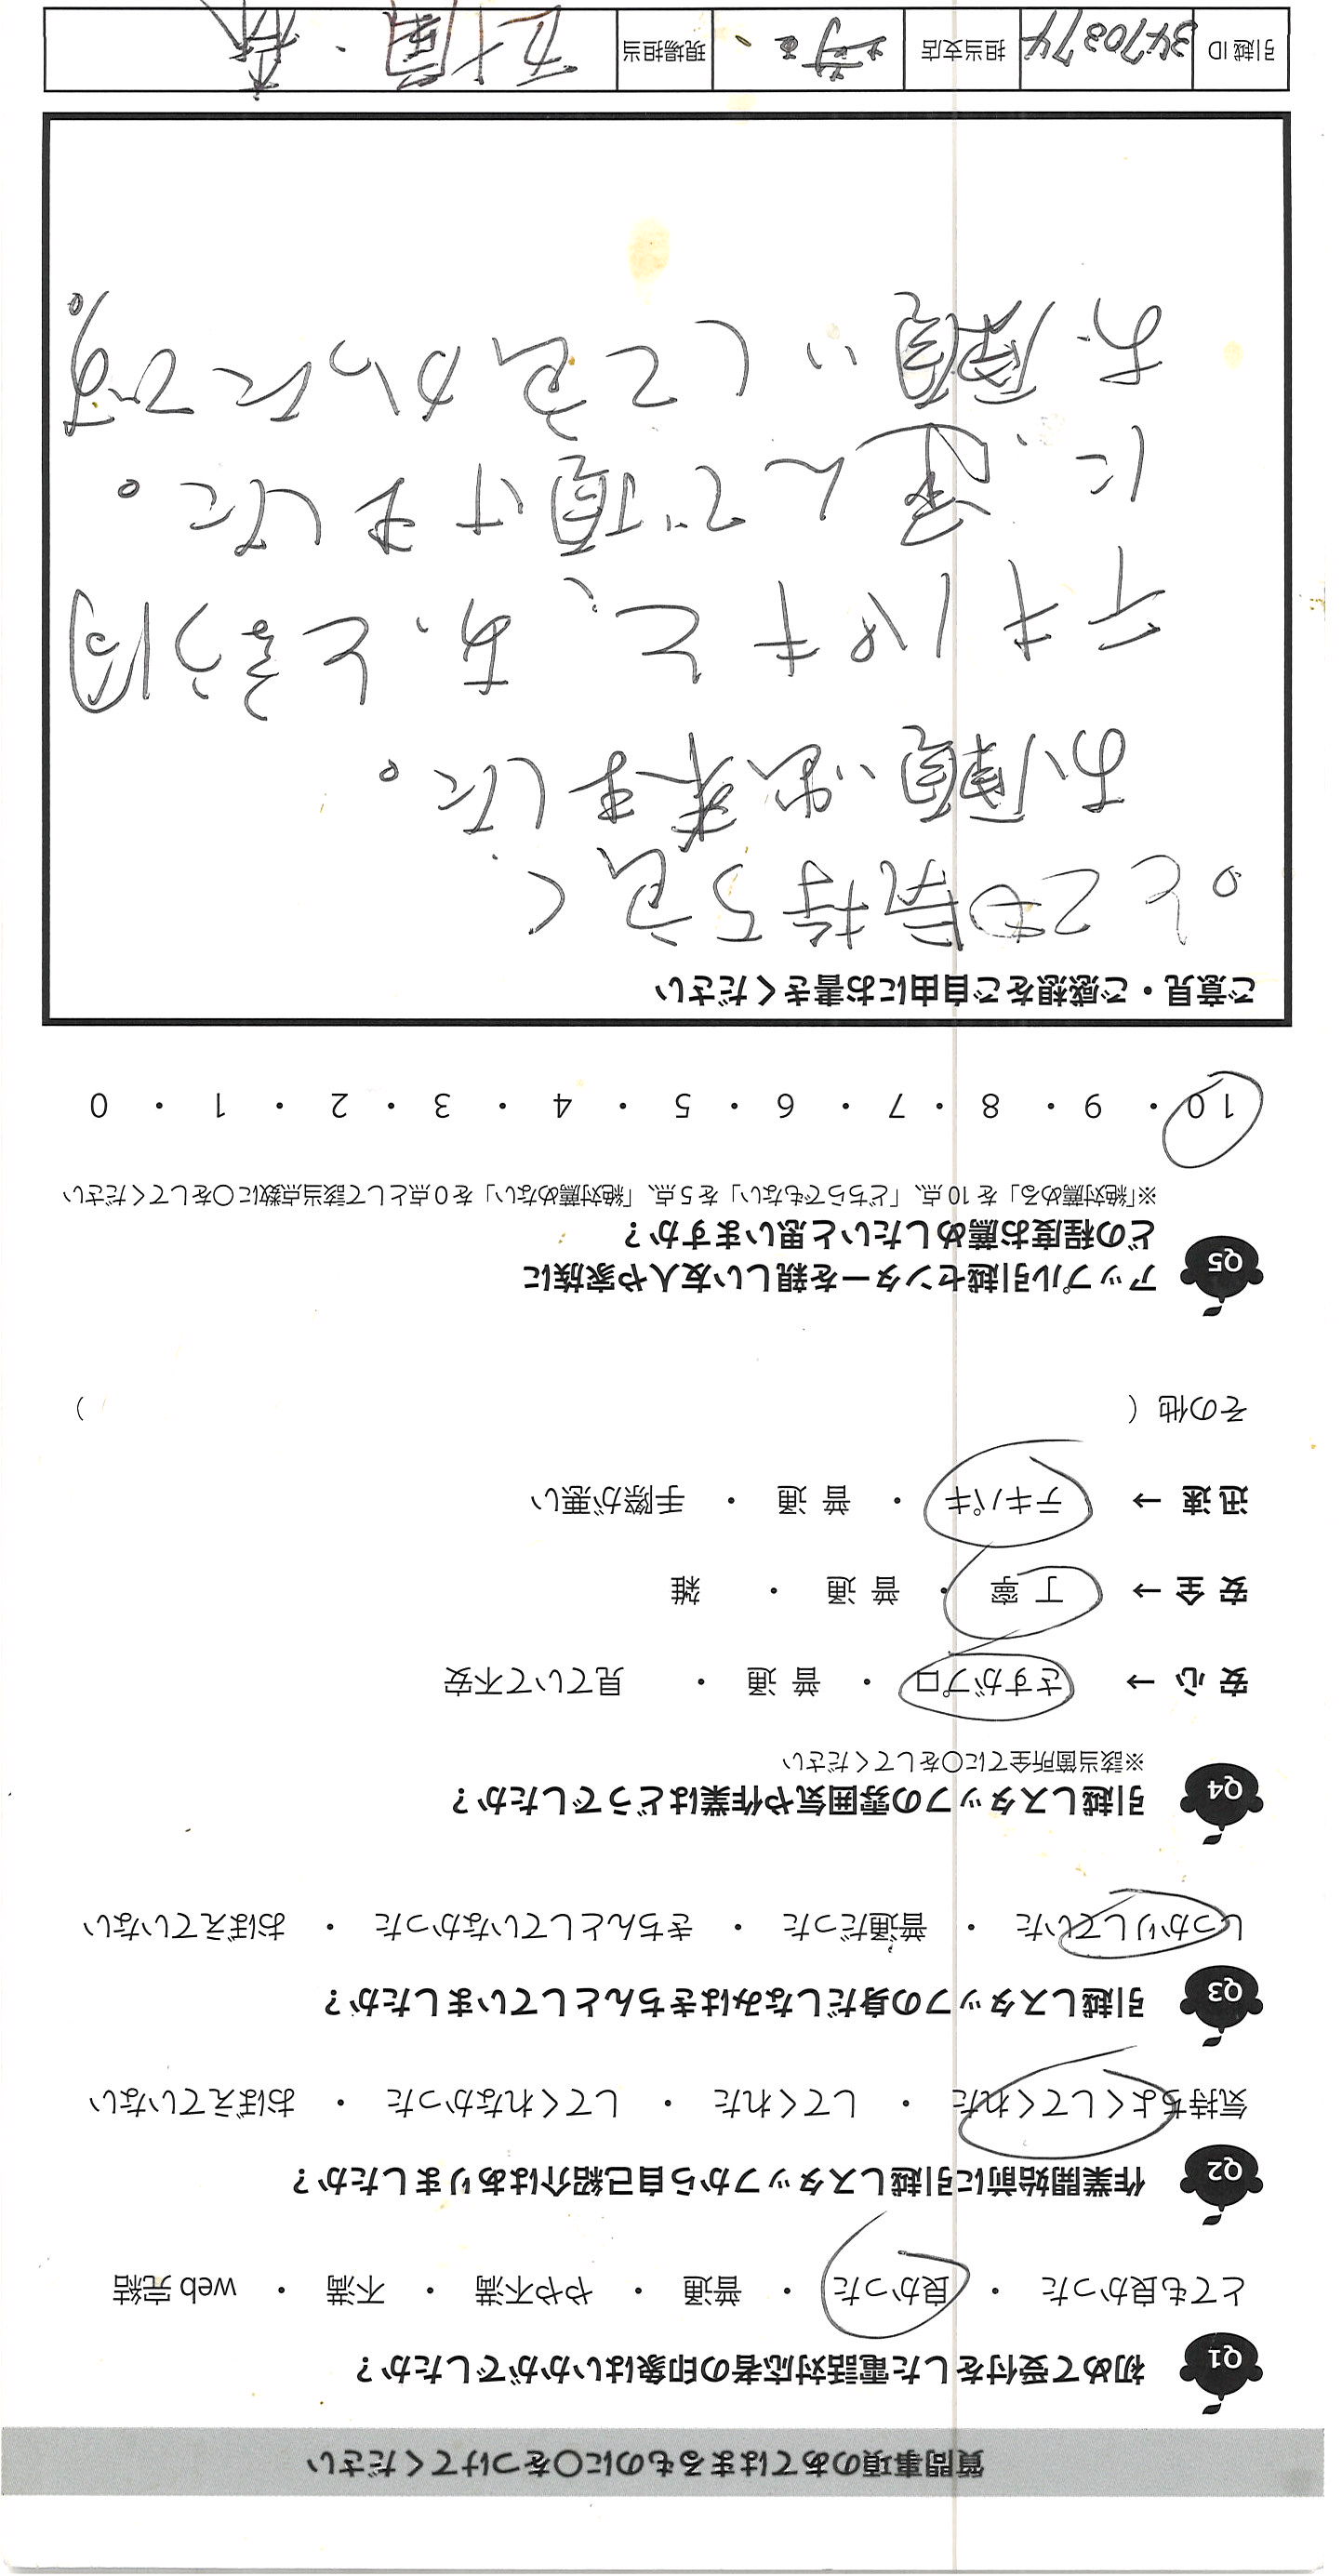 質問事項のあてはまるものに〇をつけてください
Q1 初めて受付をした電話対応者の印象はいかがでしたか？
とても良かった ・ 良かった ・ 普通 ・ やや不満 ・ 不満 ・ web完結
Q2 作業開始前に引越しスタッフから自己紹介はありましたか？
気持ちよくしてくれた ・ してくれた ・ してくれなかった ・ おぼえていない
Q3 引越しスタッフの身だしなみはきちんとしていましたか？
しっかりしていた ・ 普通だった ・ きちんとしていなかった ・ おぼえていない
Q4 引越しスタッフの雰囲気や作業はどうでしたか？
※該当箇所全てに〇をしてください
安 心 → さすがプロ ・ 普 通 ・ 見ていて不安
安 全 → 丁 寧 ・ 普 通 ・ 雑
迅 速 → テキパキ ・ 普 通 ・ 手際が悪い
その他（ ）
Q5 アップル引越センターを親しい友人や家族に
どの程度お薦めしたいと思いますか？
※「絶対薦める」を10点、「どちらでもない」を5点、「絶対薦めない」を0点として該当点数に〇をしてください
10 ・ 9 ・ 8 ・ 7 ・ 6 ・ 5 ・ 4 ・ 3 ・ 2 ・ 1 ・ 0
ご意見・ご感想をご自由にお書きください
。とても気持ち良く
お願い出来ました。
テキパキと、あっと言う間
に、運んで頂けました。
お願いして良かったです。
引越ID 3470374 担当支店 埼玉 現場担当